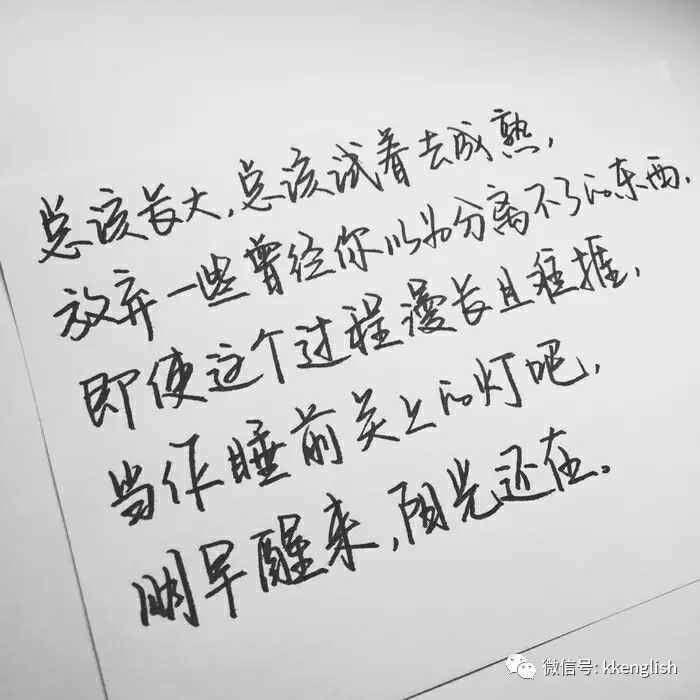 总该长大,总该试着去成熟,
放弃一些曾经你以为分离不了的东西,
即使这个过程漫长且
当作睡前关上的灯吧,
明早醒来,阳光还在。
微信号: kkenglish